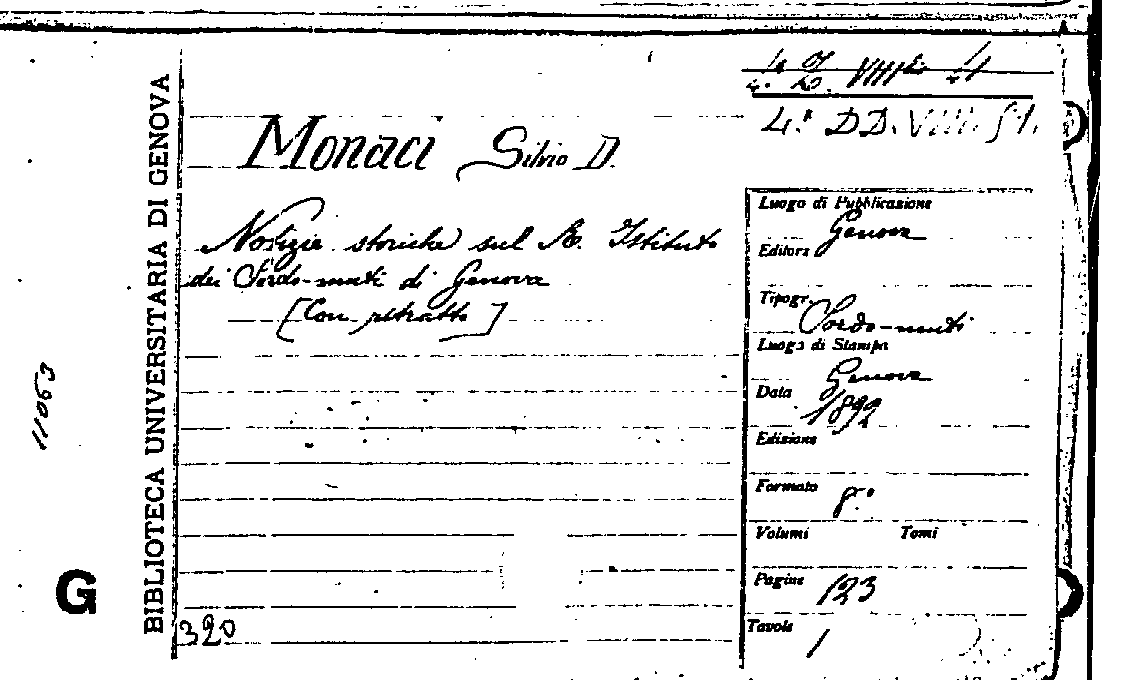 4.ª DD. VIII. 51.
Monaci Silvio D.
Notizie storiche sul R. Istituto
dei Sordo-muti di Genova
[Con ritratto]
Luogo di Pubblicazione
Genova
Editore
Tipogr.
Sordo-muti
Luogo di Stampa
Genova
Data
1892
Edizione
Formato 8.º
Volumi Tomi
Pagine 123
Tavole 1
BIBLIOTECA UNIVERSITARIA DI GENOVA
11063
G
320